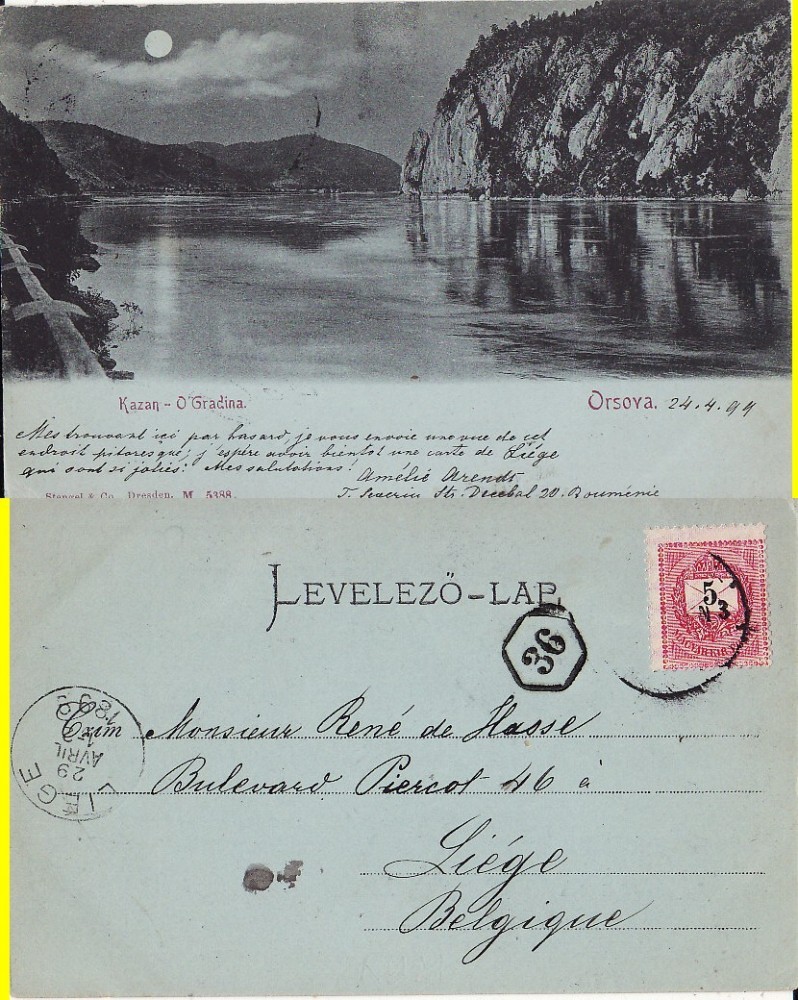 Kazan - O'Gradina.
Orsova. 24.4.99
Mes trouvant ici par hasard, je vous envoie une vue de cet
endroit pitoresque, j'espère avoir bientot une carte de Liége
qui sont si jolies! Mes salutations!
Amélie Arendt
T. Severin Str. Decebal 20. Rouménie
Stengel & Co., Dresden. M 5388.
LEVELEZŐ-LAP.
5
36
Monsieur René de Hasse
Czim
LIÉGE
29
AVRIL
1899
Bulevard Piercot 46 à
Liége
Belgique